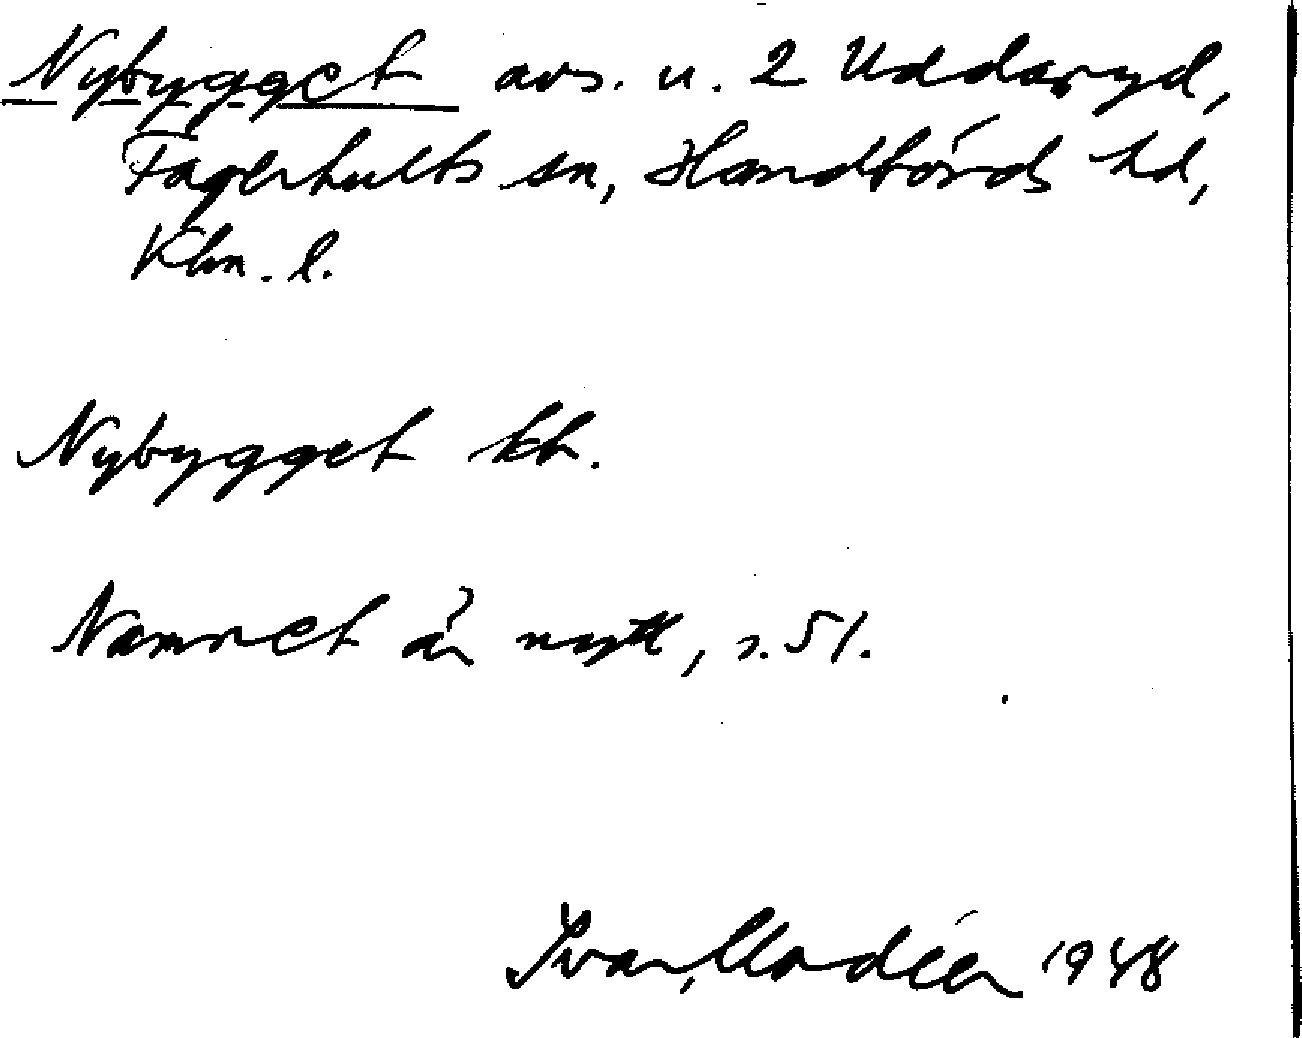 Nybygget avs. u. 2 Uddaryd,
Fagerhults sn, Handbörds hd,
Klm. l.
Nybygget kb.
Namnet är nytt, s. 51.
Ivar Modéer 1948